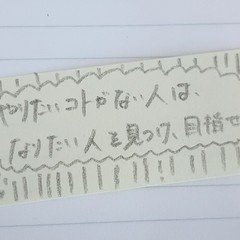 やりたいコトがない人は、
なりたい人を見つけ、目指せ